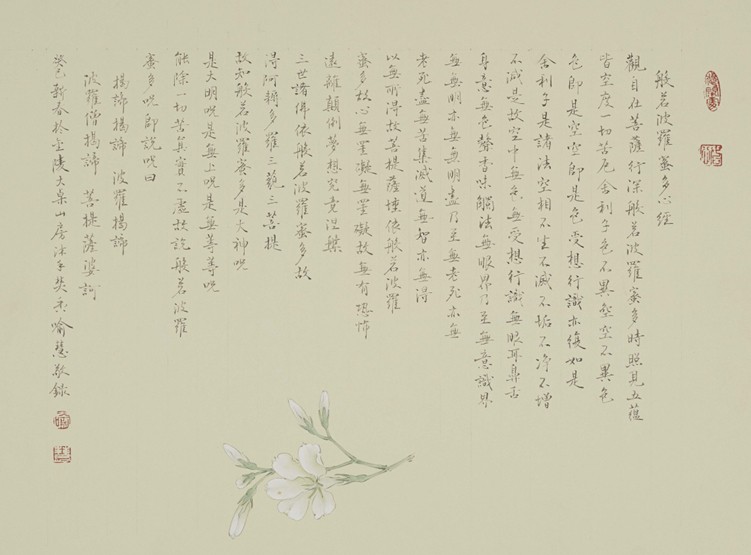 般若波羅蜜多心經
觀自在菩薩行深般若波羅蜜多時照見五蘊
皆空度一切苦厄舍利子色不異空空不異色
色即是空空即是色受想行識亦復如是
舍利子是諸法空相不生不滅不垢不淨不增
不減是故空中無色無受想行識無眼耳鼻舌
身意無色聲香味觸法無眼界乃至無意識界
無無明亦無無明盡乃至無老死亦無
老死盡無苦集滅道無智亦無得
以無所得故菩提薩埵依般若波羅
蜜多故心無罣礙無罣礙故無有恐怖
遠離顛倒夢想究竟涅槃
三世諸佛依般若波羅蜜多故
得阿耨多羅三藐三菩提
故知般若波羅蜜多是大神呪
是大明呪是無上呪是無等等呪
能除一切苦真實不虛故說般若波羅
蜜多呪即說呪曰
揭諦揭諦 波羅揭諦
波羅僧揭諦 菩提薩婆訶
癸巳新春於金陵大桌山房沐手焚香喻慧敬錄